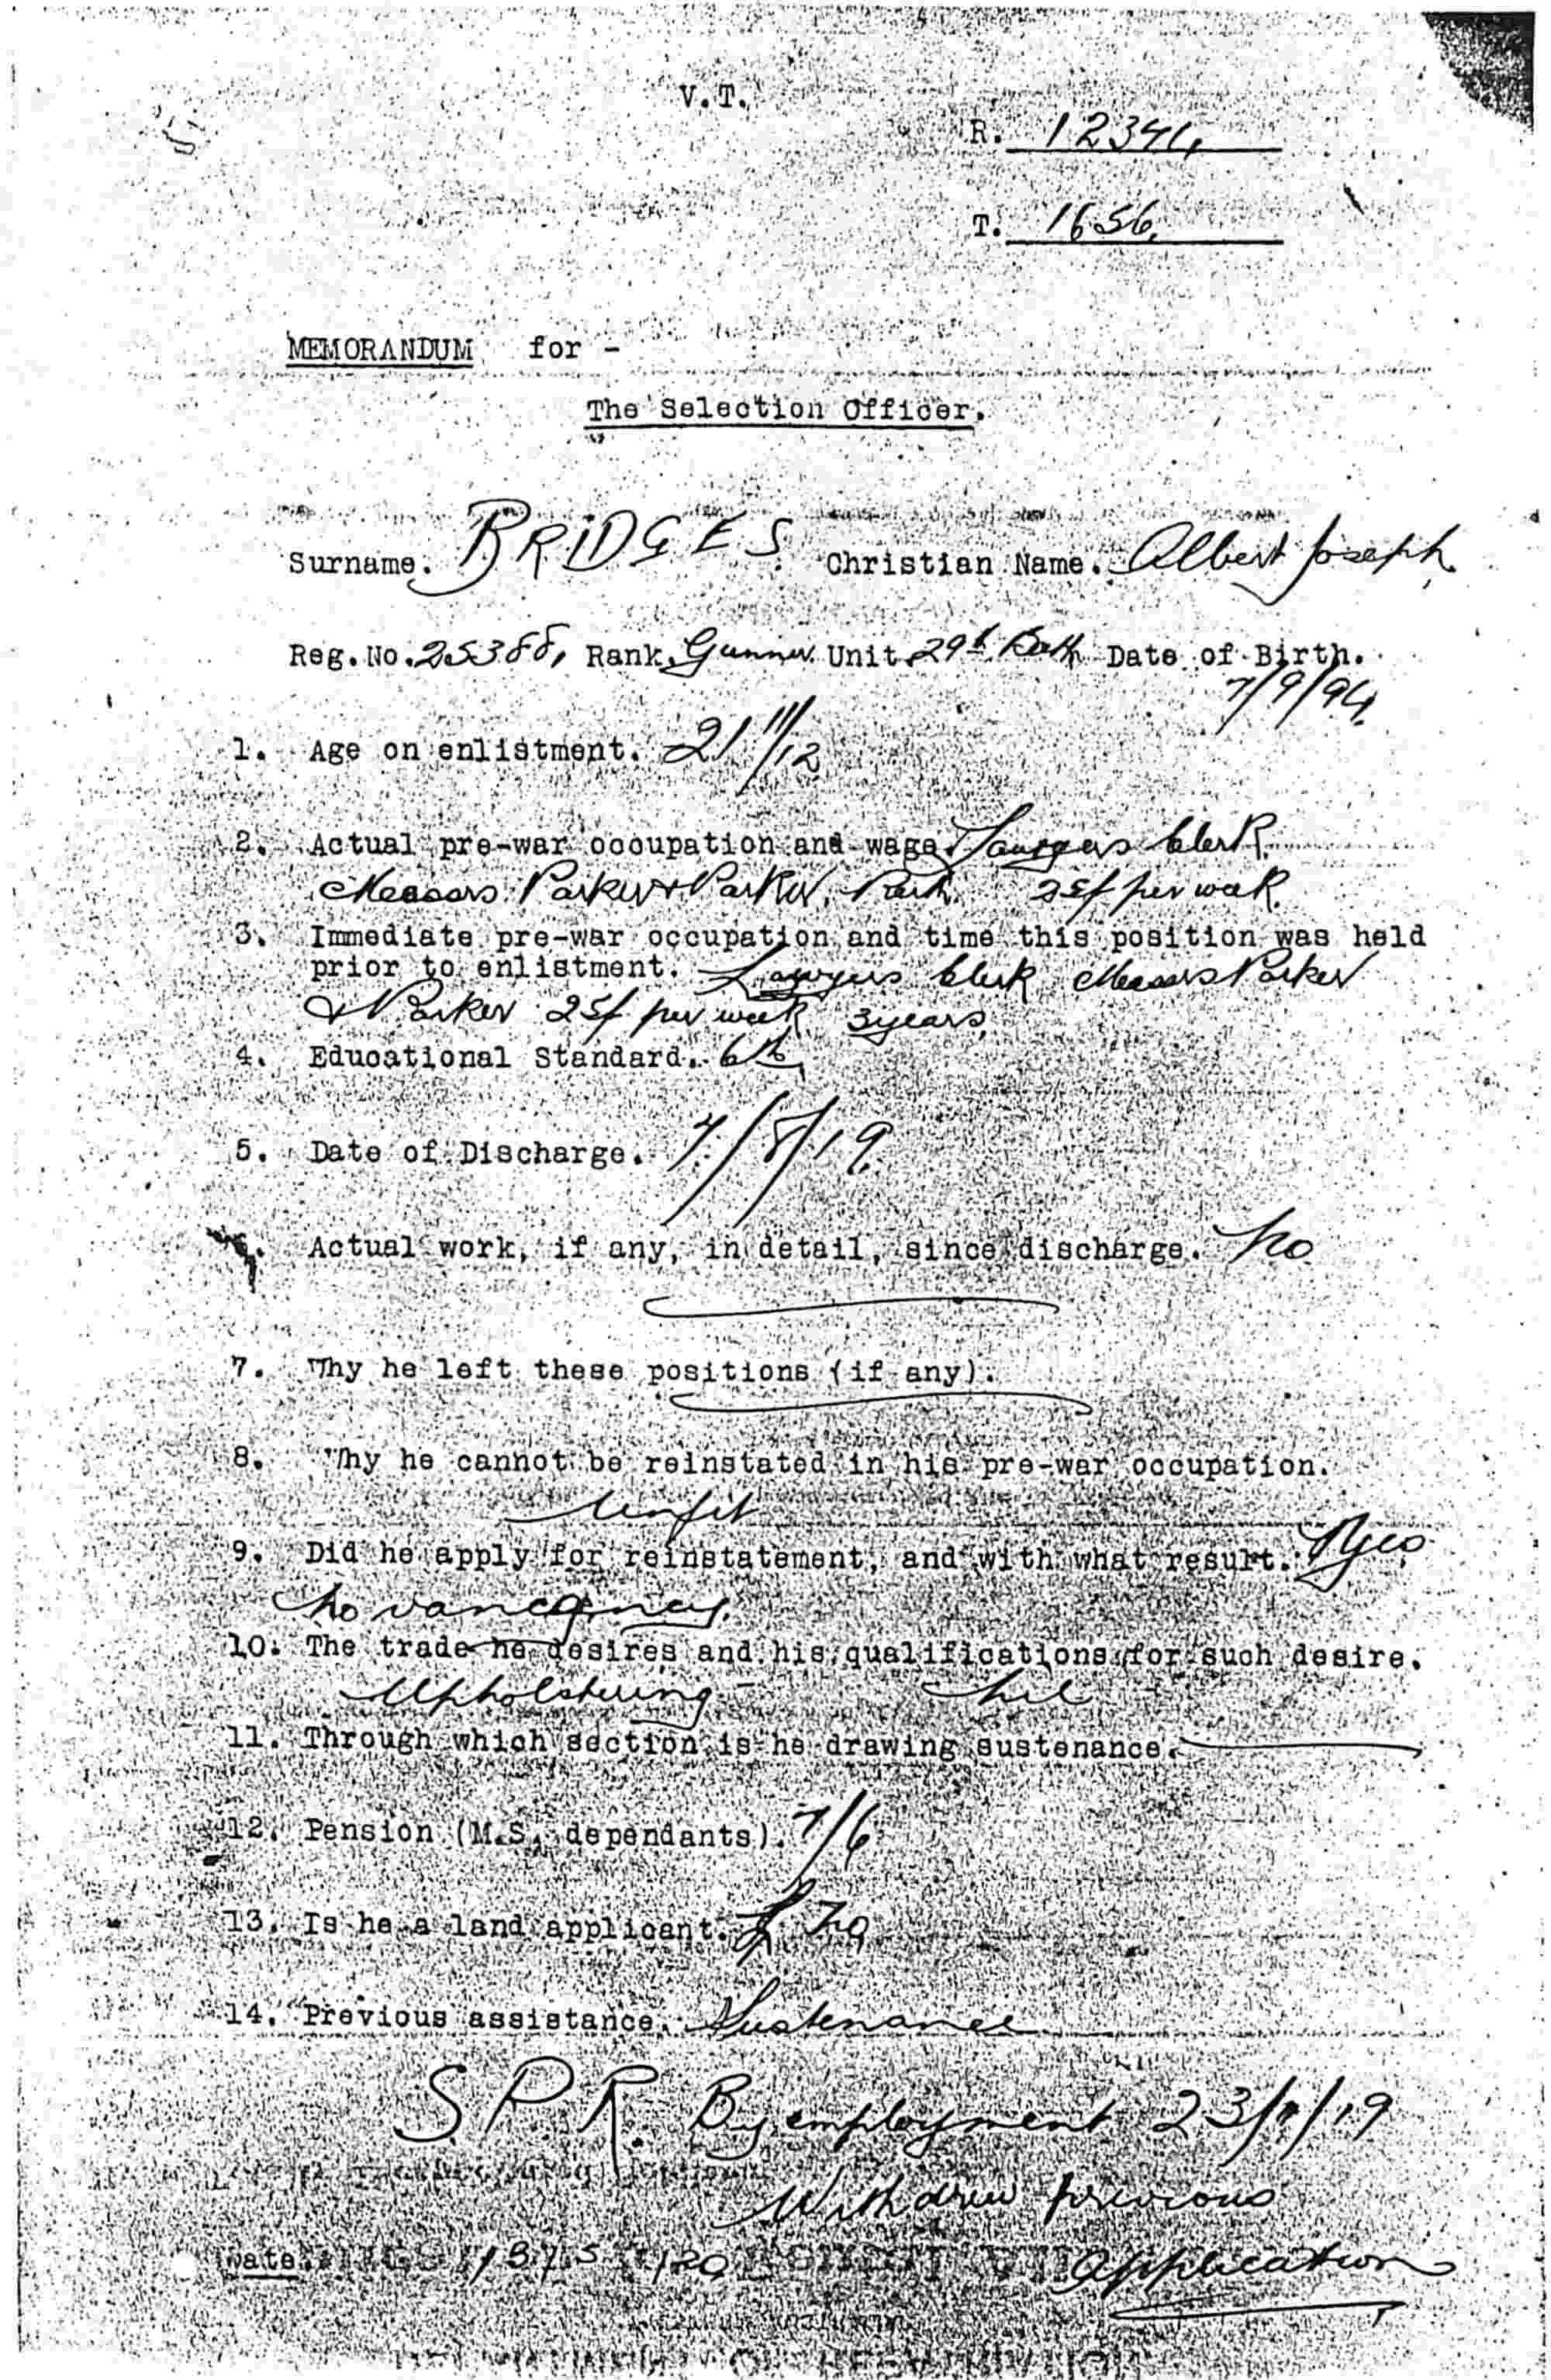 V.T.
R. 12341.
T. 1656.
MEMORANDUM for -
The Selection Officer.
Surname. BRIDGES Christian Name. Albert Joseph
Reg. No. 25388, Rank. Gunner Unit 29th Batt Date of Birth.
7/9/94.
1. Age on enlistment. 21 11/12
2. Actual pre-war occupation and wage. Lawyers Clerk.
Messrs Parker & Parker, Perth. 25/ per week.
3. Immediate pre-war occupation and time this position was held
prior to enlistment. Lawyers Clerk Messrs Parker
& Parker 25/ per week 3 years,
4. Educational Standard. 6th,
5. Date of Discharge. 7/8/19.
Actual work, if any, in detail, since discharge. No
7. Why he left these positions (if any).
8. Why he cannot be reinstated in his pre-war occupation.
Unfit
9. Did he apply for reinstatement, and with what result. Yes
No
10. The trade he desires and his qualifications for such desire.
Upholstering - Nil
11. Through which section is he drawing sustenance.
12. Pension (M.S. dependants). 7/6
13. Is he a land applicant. No
14. Previous assistance. Sustenance
S.P.R. By employment
Withdrew previous
Date. application